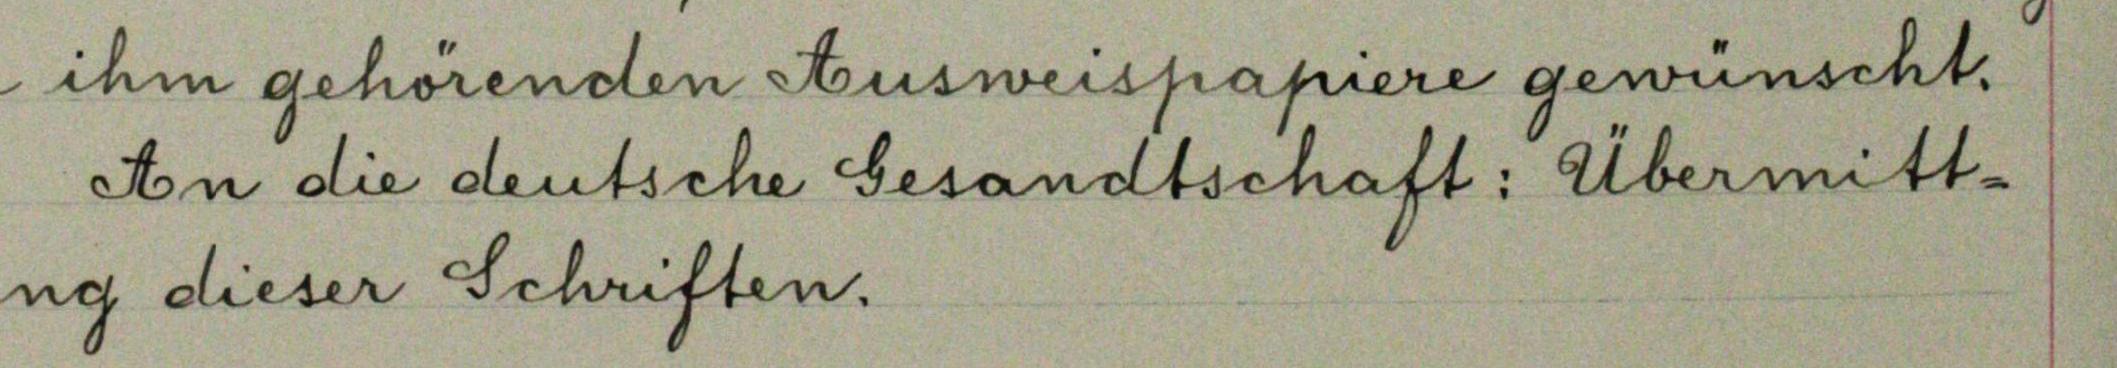 ihm gehörenden Ausweispapiere gewünscht.
An die deutsche Gesandtschaft: Übermitt=
ng dieser Schriften.